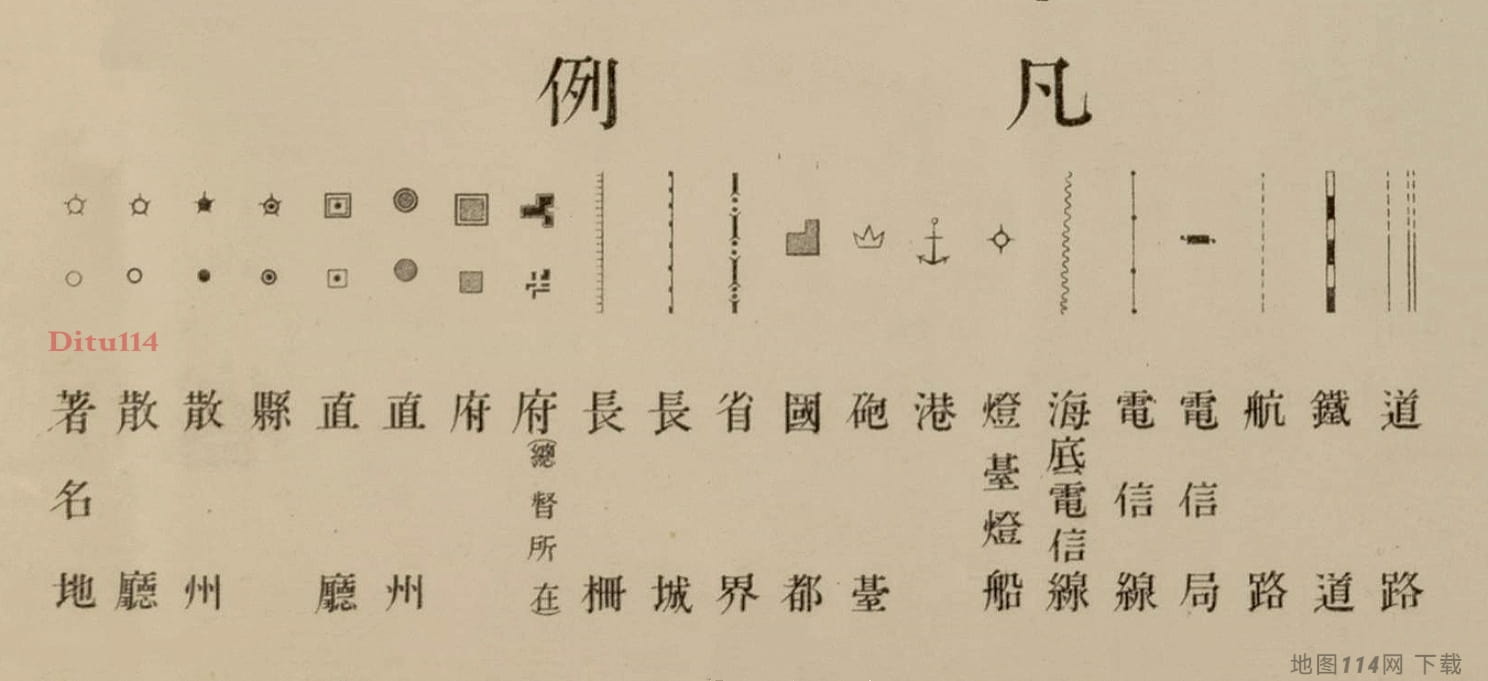 凡例
道路
鐵道
航路
電信局
電信線
海底電信線
燈臺燈船
港
砲臺
國都
省界
長城
長柵
府(總督所在)
府
直州
直廳
縣
散州
散廳
著名地
Ditu114
地图114网 下载